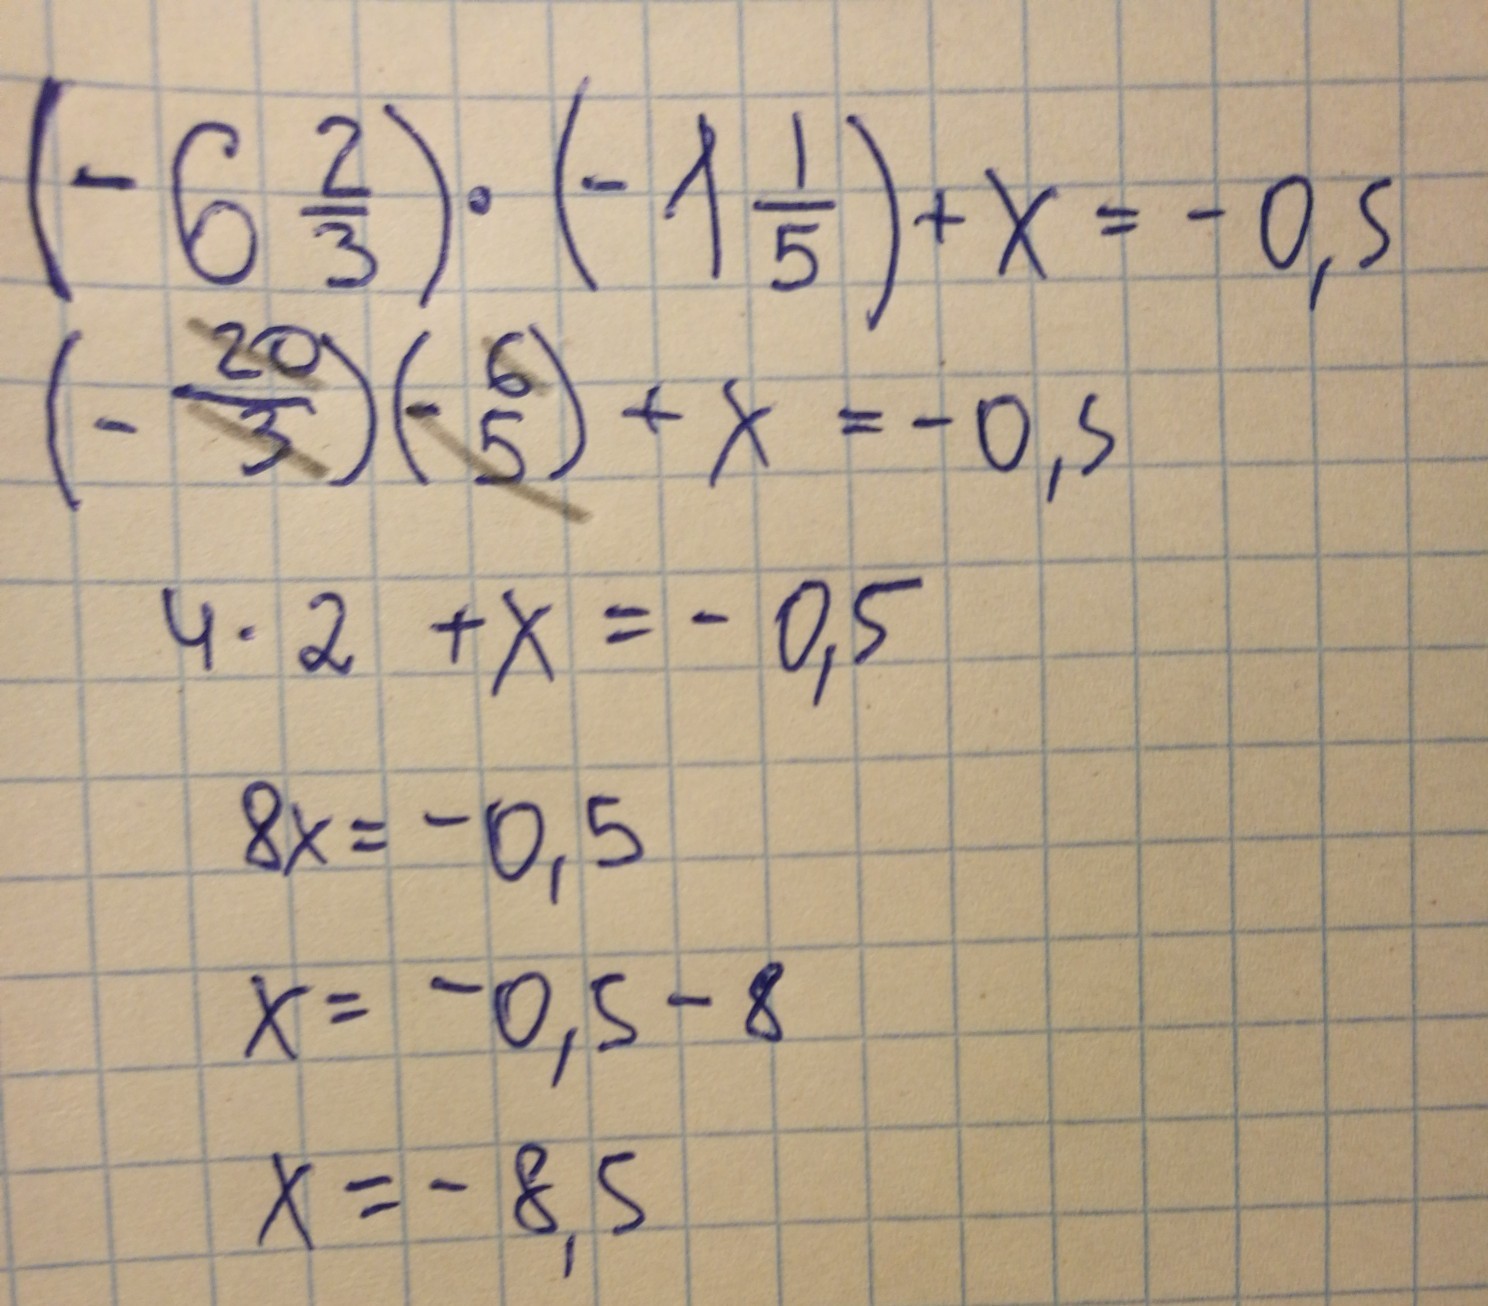 (- 6 2/3) · (- 1 1/5) + x = - 0,5
(- 20/3)(- 6/5) + x = - 0,5
4 · 2 + x = - 0,5
8x = - 0,5
x = - 0,5 - 8
x = - 8,5